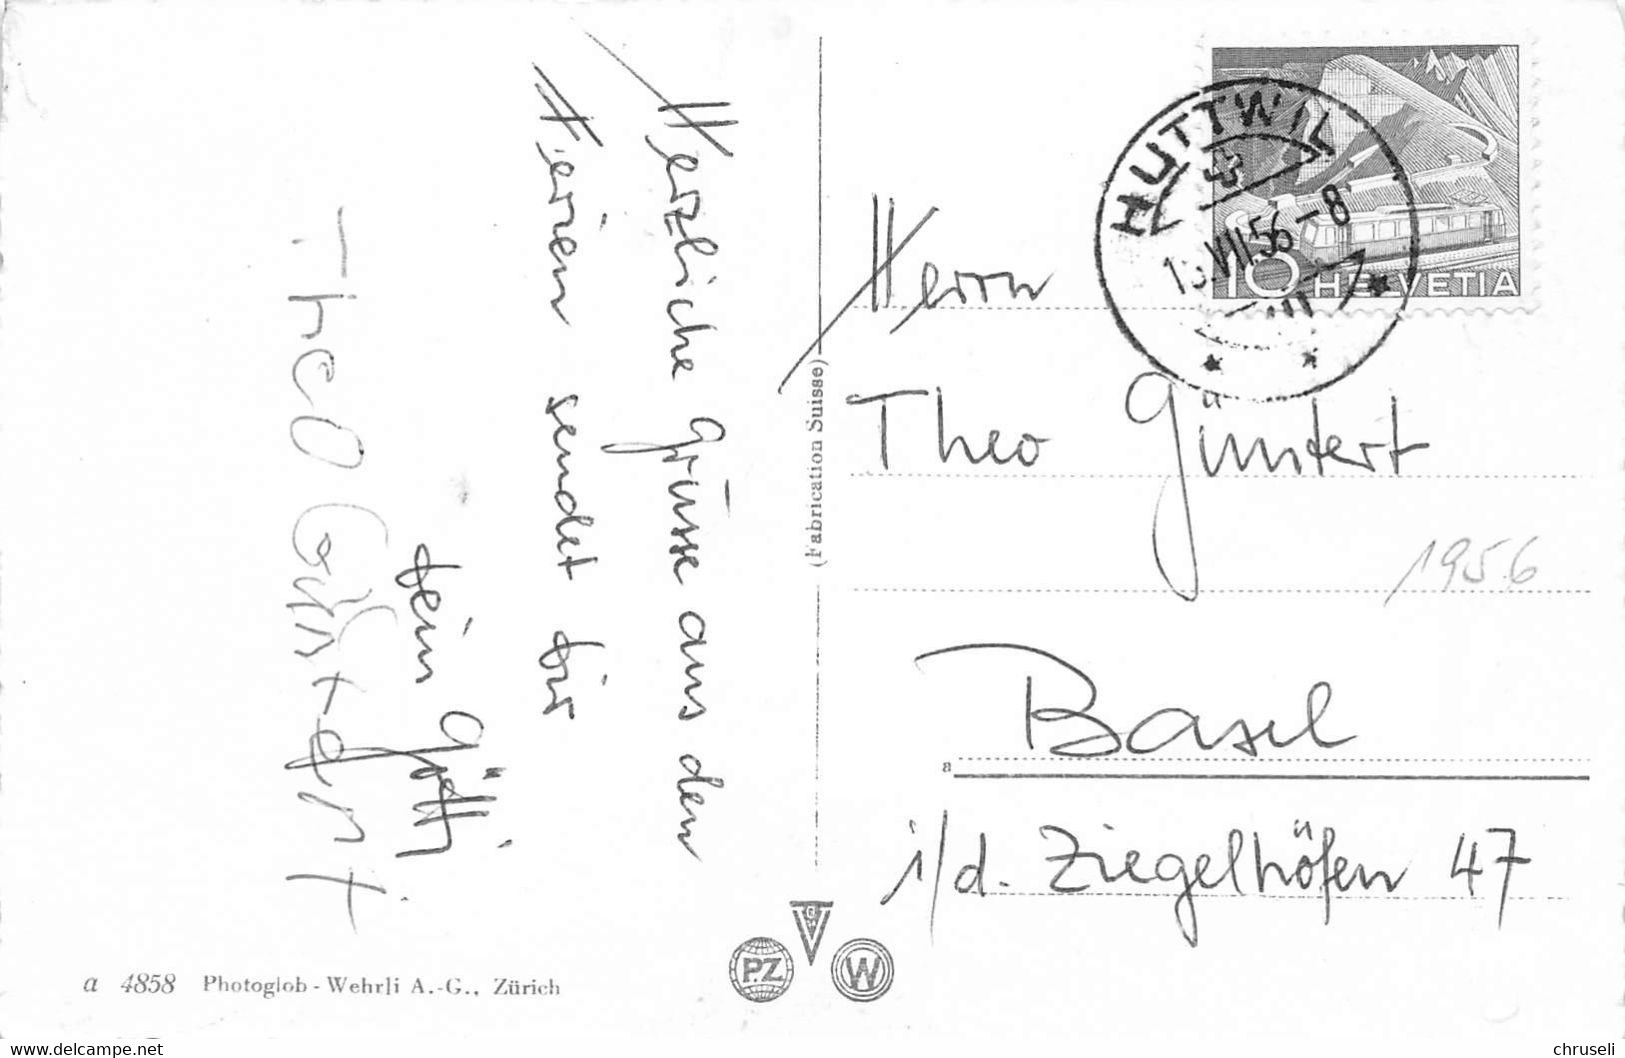 Herzliche Grüsse aus den
Ferien sendet dir
dein Götti
Theo Güntert
(Fabrication Suisse)
HUTTWIL
VII.56-8
10 HELVETIA
Herrn
Theo Güntert
1956
Basel
a
i/d. Ziegelhöfen 47
a 4858 Photoglob-Wehrli A.-G., Zürich
PZ
W
www.delcampe.net
chruseli